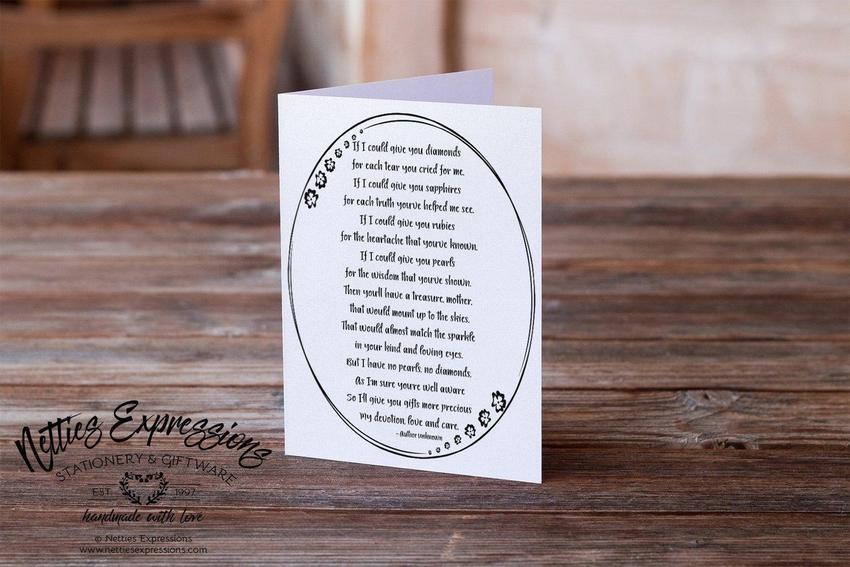 If I could give you diamonds
for each tear you cried for me.
If I could give you sapphires
for each truth you've helped me see.
If I could give you rubies
for the heartache that you've known.
If I could give you pearls
for the wisdom that you've shown.
Then you'll have a treasure, mother,
that would mount up to the skies.
That would almost match the sparkle
in your kind and loving eyes.
But I have no pearls, no diamonds,
As I'm sure you're well aware
So I'll give you gifts more precious
my devotion, love and care.
~Author unknown
Netties Expressions
STATIONERY & GIFTWARE
EST. 1997
handmade with love
© Netties Expressions
www.nettiesexpressions.com